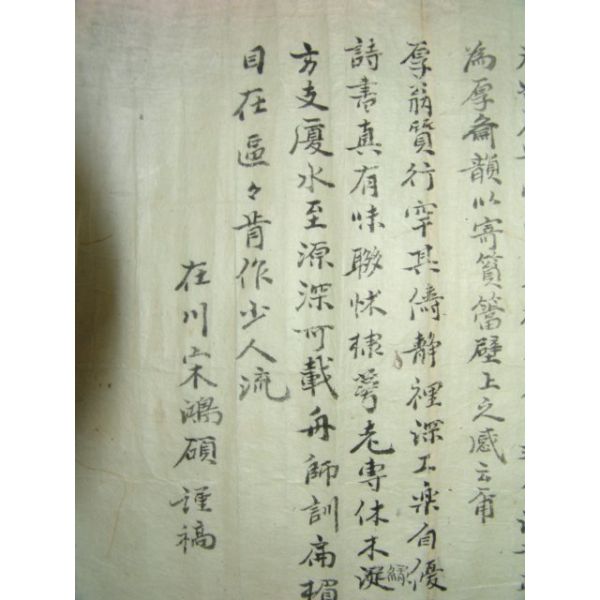 為厚齋韻以寄篔簹壁上之感云爾
厚翁質行罕其儔靜裡深工樂自優
詩書真有味聯床棣萼老專休木從繩
方支廈水至源深可載舟師訓扁楣
目在區々肯作少人流
在川宋鴻碩謹稿